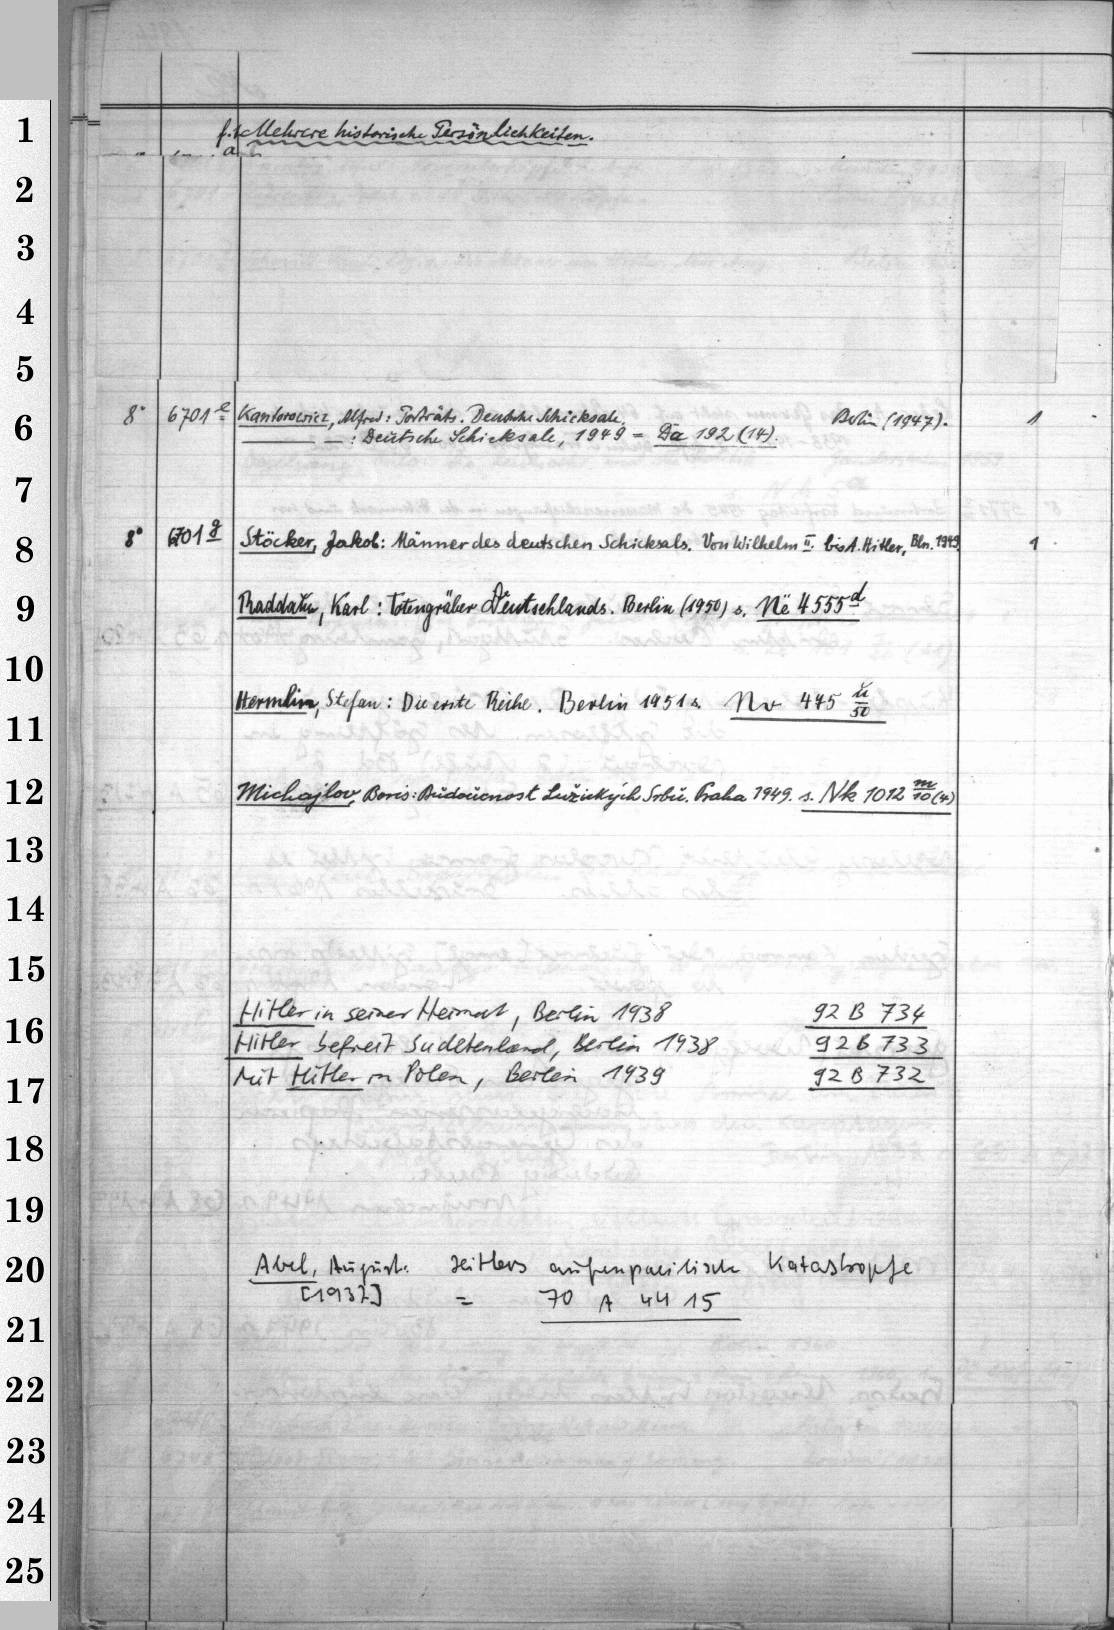 1
Mehrere historische Persönlichkeiten.
2
3
4
5
8° 6701 e Kantorowicz, Alfred: Porträts. Deutsche Schicksale. Berlin (1947). 1
6
— — : Deutsche Schicksale, 1949 = Da 192 (14).
7
8
8° 6701 g Stöcker, Jakob: Männer des deutschen Schicksals. Von Wilhelm II. bis A. Hitler, Bln. 1949 1
9
Raddatz, Karl: Totengräber Deutschlands. Berlin (1950) s. Në 4555 d
10
11
Hermlin, Stefan: Die erste Reihe. Berlin 1951 s. Nv 475 ü/50
12
Michajlov, Boris: Budoucnost Lužických Srbů. Praha 1949. s. Nk 1012 m/10 (4)
13
14
15
Hitler in seiner Heimat, Berlin 1938 92 B 734
16
Hitler befreit Sudetenland, Berlin 1938 92 B 733
Mit Hitler in Polen, Berlin 1939 92 B 732
17
18
19
20
Abel, August: Hitlers außenpolitische Katastrophe
[1937] = 70 A 4415
21
22
23
24
25